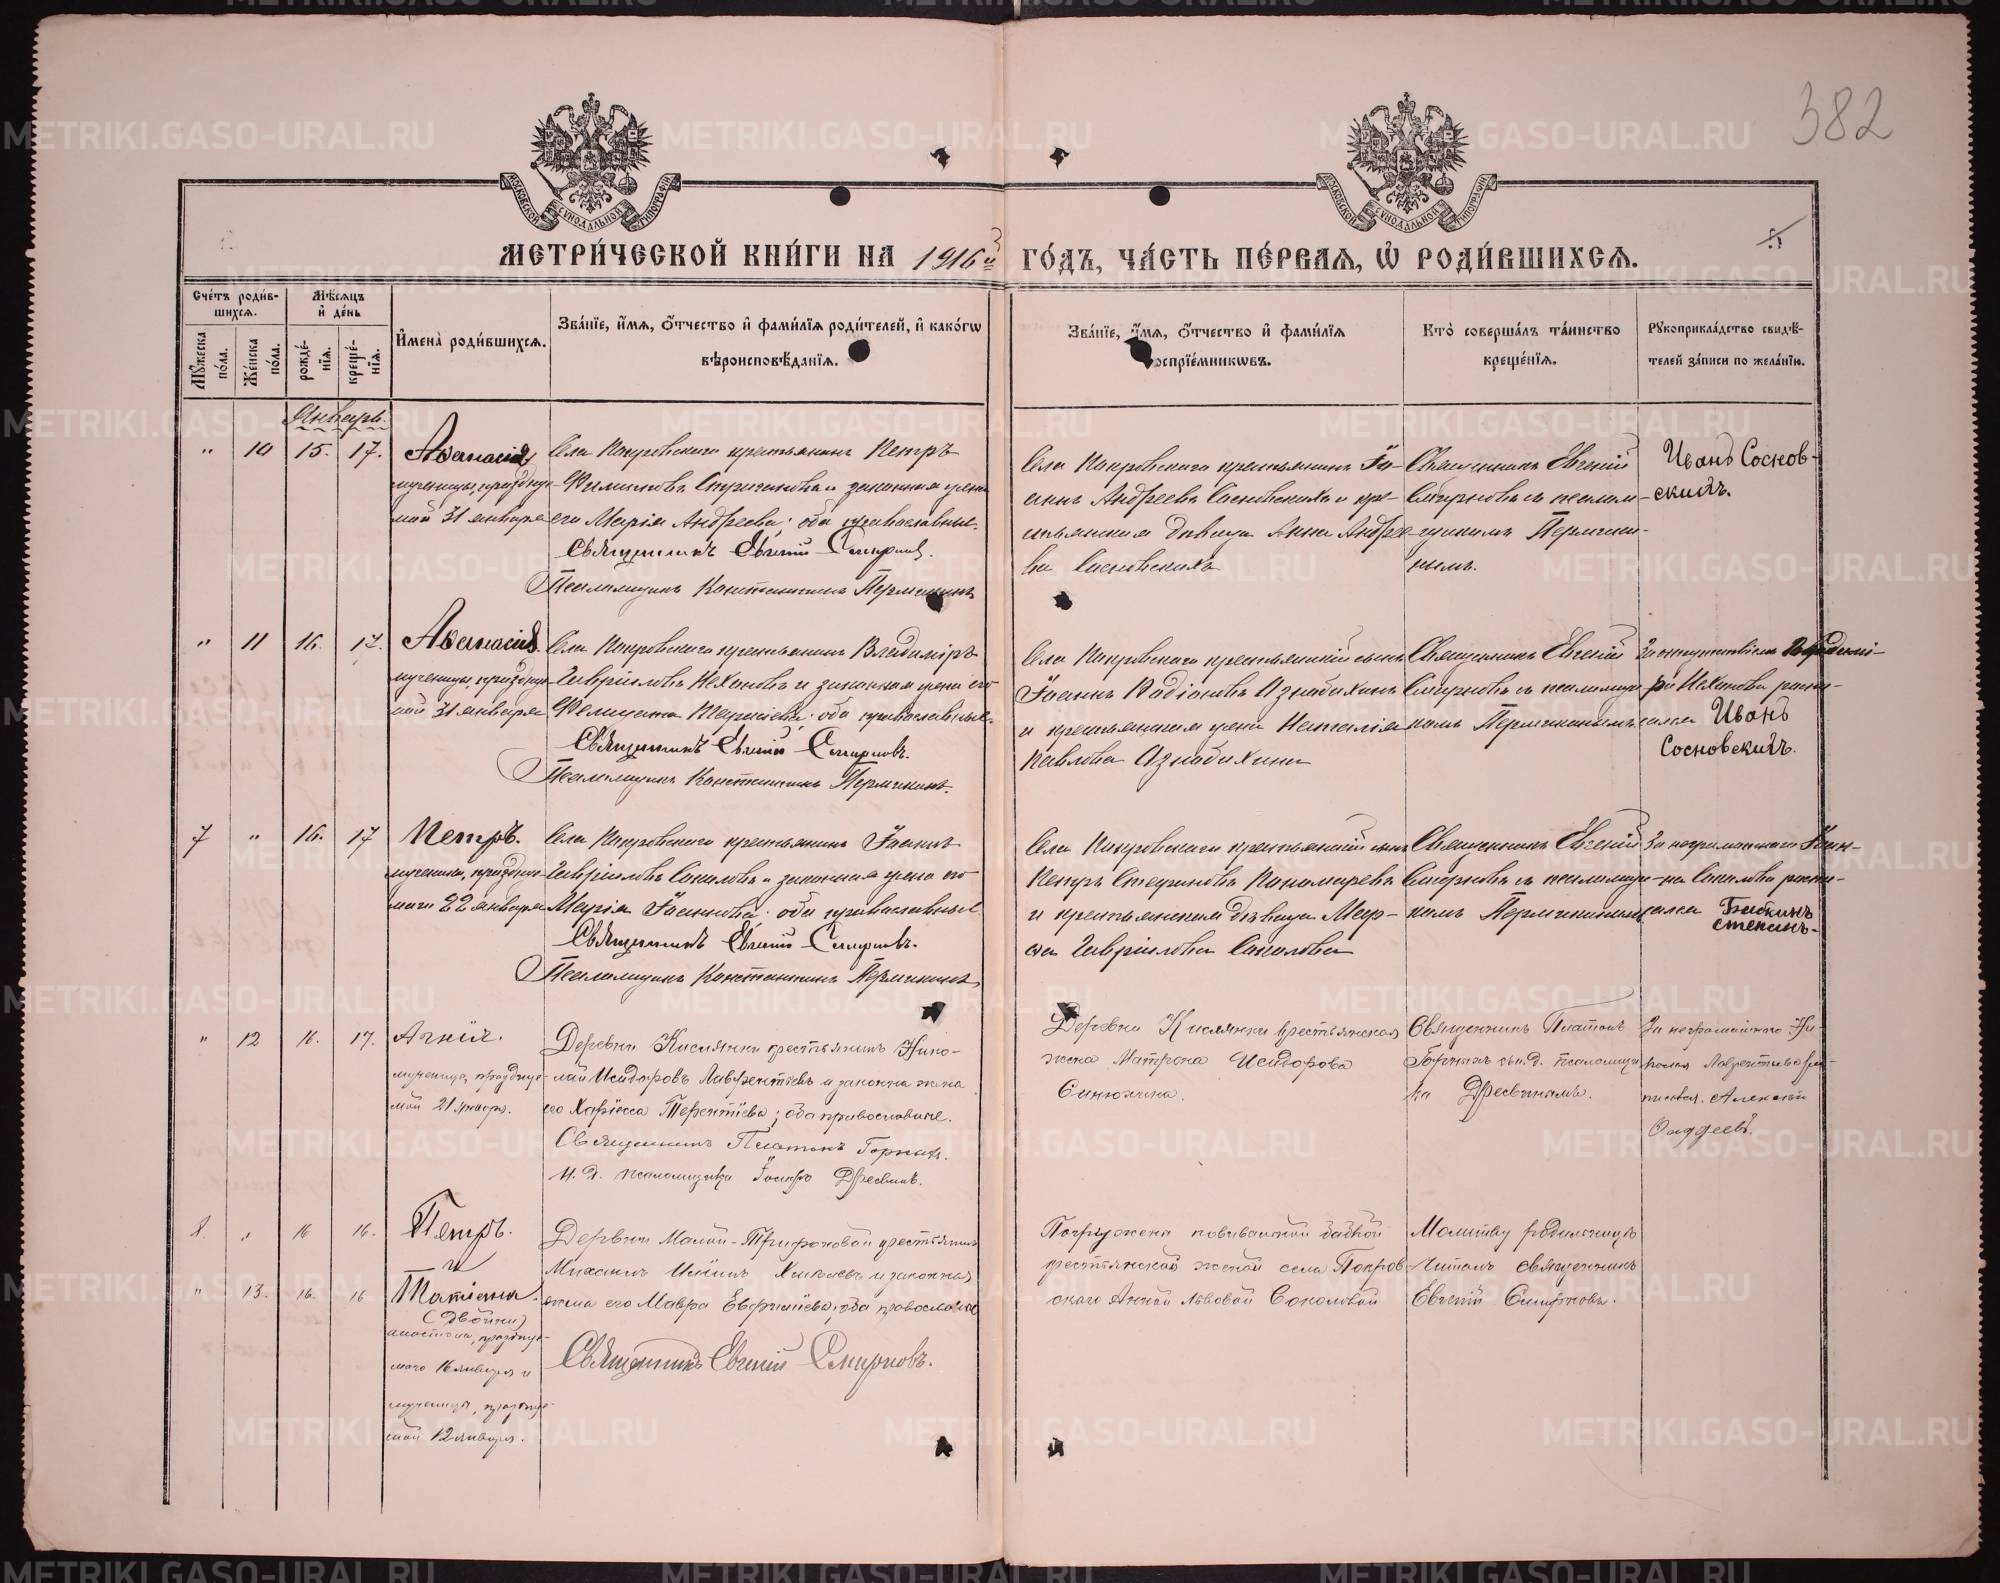 382
МОСКОВСКОЙ СѴНОДАЛЬНОЙ ТИПОГРАФІИ
МОСКОВСКОЙ СѴНОДАЛЬНОЙ ТИПОГРАФІИ
МЕТРИ́ЧЕСКОЙ КНИ́ГИ НА 1916й ГО́ДЪ, ЧА́СТЬ ПЕ́РВАЯ, Ѡ҆ РОДИ́ВШИХСЯ.
Сче́тъ роди́в-
шихся.
Мѣ́сяцъ
и҆ де́нь
Мꙋ́жеска по́ла.
Же́нска по́ла.
рожде́-нїя.
креще́-нїя.
И҆мена̀ роди́вшихся.
Зва́нїе, и҆́мя, ѻ҆́тчество и҆ фами́лїя роди́телей, и҆ како́гѡ
вѣроисповѣ́данїя.
Зва́нїе, и҆́мя, ѻ҆́тчество и҆ фами́лїя
воспрїе́мникѡвъ.
Кто̀ соверша́лъ та́инство
креще́нїя.
Рꙋкоприкла́дство свидѣ́-
телей за́писи по жела́нїю.
Январь.
" 10 15. 17.
Аѳанасія
мученицы, праздну-
мой 31 января
Села Покровскаго крестьянинъ Петръ
Филиповъ и законная жена
его Марія Андреева; оба православные.
Священникъ Евгеній Смирновъ.
Псаломщикъ Константинъ Пермикинъ
Села Покровскаго крестьянинъ Іо-
аннъ Андреевъ Сосновскихъ и кре-
стьянская дѣвица Анна Андрее-
ва Сосновскихъ
Священникъ Евгеній
Смирновъ съ псалом-
щикомъ Пермики-
нымъ.
Иванъ Соснов-
скихъ.
" 11 16. 17.
Аѳанасія.
мученицы, праздну-
мой 31 января
Села Покровскаго крестьянинъ Владиміръ
Гавріиловъ Нехановъ и законная жена его
Фелицата Тарасіева; оба православные.
Священникъ Евгеній Смирновъ.
Псаломщикъ Константинъ Пермикинъ.
Села Покровскаго крестьянскій сынъ
Іоаннъ Родіоновъ Азнабихинъ
и крестьянская жена Наталія
Павлова Азнабихина
Священникъ Евгеній
Смирновъ съ псаломщи-
комъ Пермикинымъ
За отсутствіемъ Владимі-
ра Неханова роспи-
сался Иванъ
Сосновскихъ.
7 " 16. 17
Петръ.
мученика, праздну-
маго 22 января
Села Покровскаго крестьянинъ Іоаннъ
Гавріиловъ Соколовъ и законная жена его
Марія Іоаннова; оба православные
Священникъ Евгеній Смирновъ.
Псаломщикъ Константинъ Пермикинъ
Села Покровскаго крестьянскій сынъ
Петръ Стефановъ Пономаревъ
и крестьянская дѣвица Мар-
ѳа Гавріилова Соколова
Священникъ Евгеній
Смирновъ съ псаломщи-
комъ Пермикинымъ
За неграмотнаго Іоан-
на Соколова роспи-
сался Бабкинъ
Степанъ.
" 12 16. 17.
Агнія.
мученица, праздну-
мой 21 января.
Деревни Кислянки крестьянинъ Нико-
лай Исидоровъ Лаврентьевъ и законная жена
его Хариесса Терентіева; оба православные.
Священникъ Платонъ Горныхъ.
И. д. псаломщика Іосифъ Дресвинъ.
Деревни Кислянки крестьянская
жена Матрона Исидорова
Синюхина.
Священникъ Платонъ
Горныхъ съ и. д. псаломщи-
ка Дресвинымъ.
За неграмотнаго Ни-
колая Лаврентьева рос-
писался. Алексѣй
Фаддеевъ.
8. " 16 16.
Петръ.
и
" 13. 16. 16
Татіана.
(двойни)
апостола, праздну-
маго 16 января и
мученицы, праздну-
мой 12 января.
Деревни Малой-Трифоновой крестьянинъ
Михаилъ Хмѣлевъ и законная
жена его Мавра Евфиміева; оба православные
Священникъ Евгеній Смирновъ.
Погружены повивальной бабкой
крестьянской женой села Покров-
скаго Анной Львовой Соколовой
Молитву родильницѣ
читалъ священникъ
Евгеній Смирновъ.